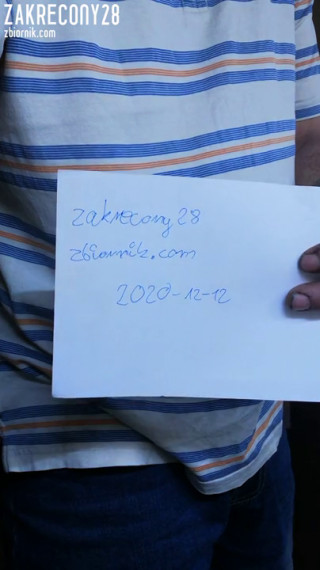 ZAKRECONY28
zbiornik.com
zakrecony 28
zbiornik.com
2020-12-12